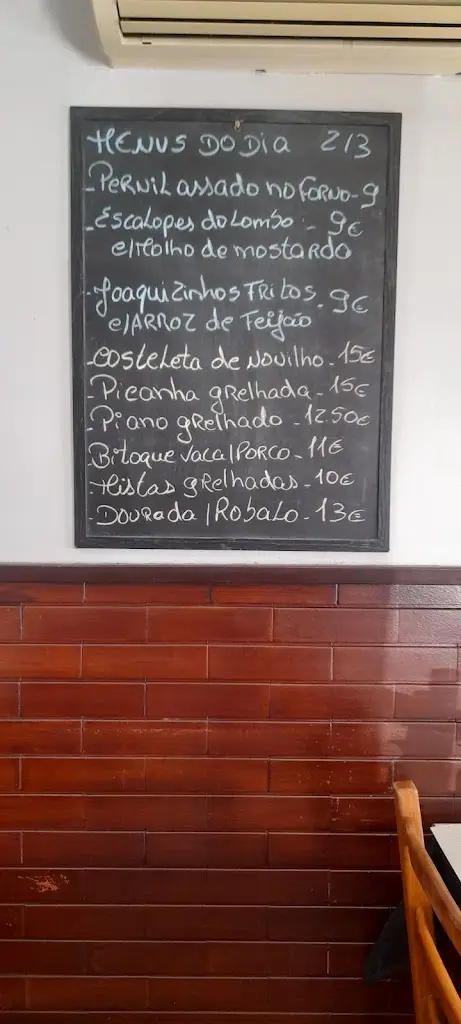 MENUS DO DIA 2/3
- PERNIL assado no FORNO - 9
- Escalopes do Lombo - 9€
c/ Molho de mostarda
- Joaquizinhos FRitos - 9€
c/ ARROZ de Feijão
- costeleta de Novilho - 15€
- Picanha gRelhada - 15€
- Piano gRelhado - 12.50€
- Bitoque Vaca / PORCO - 11€
- Mistas gRelhadas - 10€
- DOURada / Robalo - 13€